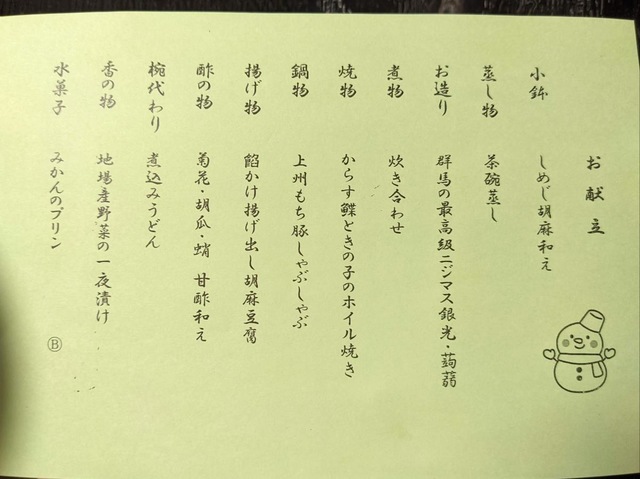 お献立
小鉢 しめじ胡麻和え
蒸し物 茶碗蒸し
お造り 群馬の最高級ニジマス銀光・蒟蒻
煮物 炊き合わせ
焼物 からす鰈ときの子のホイル焼き
鍋物 上州もち豚しゃぶしゃぶ
揚げ物 餡かけ揚げ出し胡麻豆腐
酢の物 菊花・胡瓜・蛸 甘酢和え
椀代わり 煮込みうどん
香の物 地場産野菜の一夜漬け
水菓子 みかんのプリン
Ⓑ